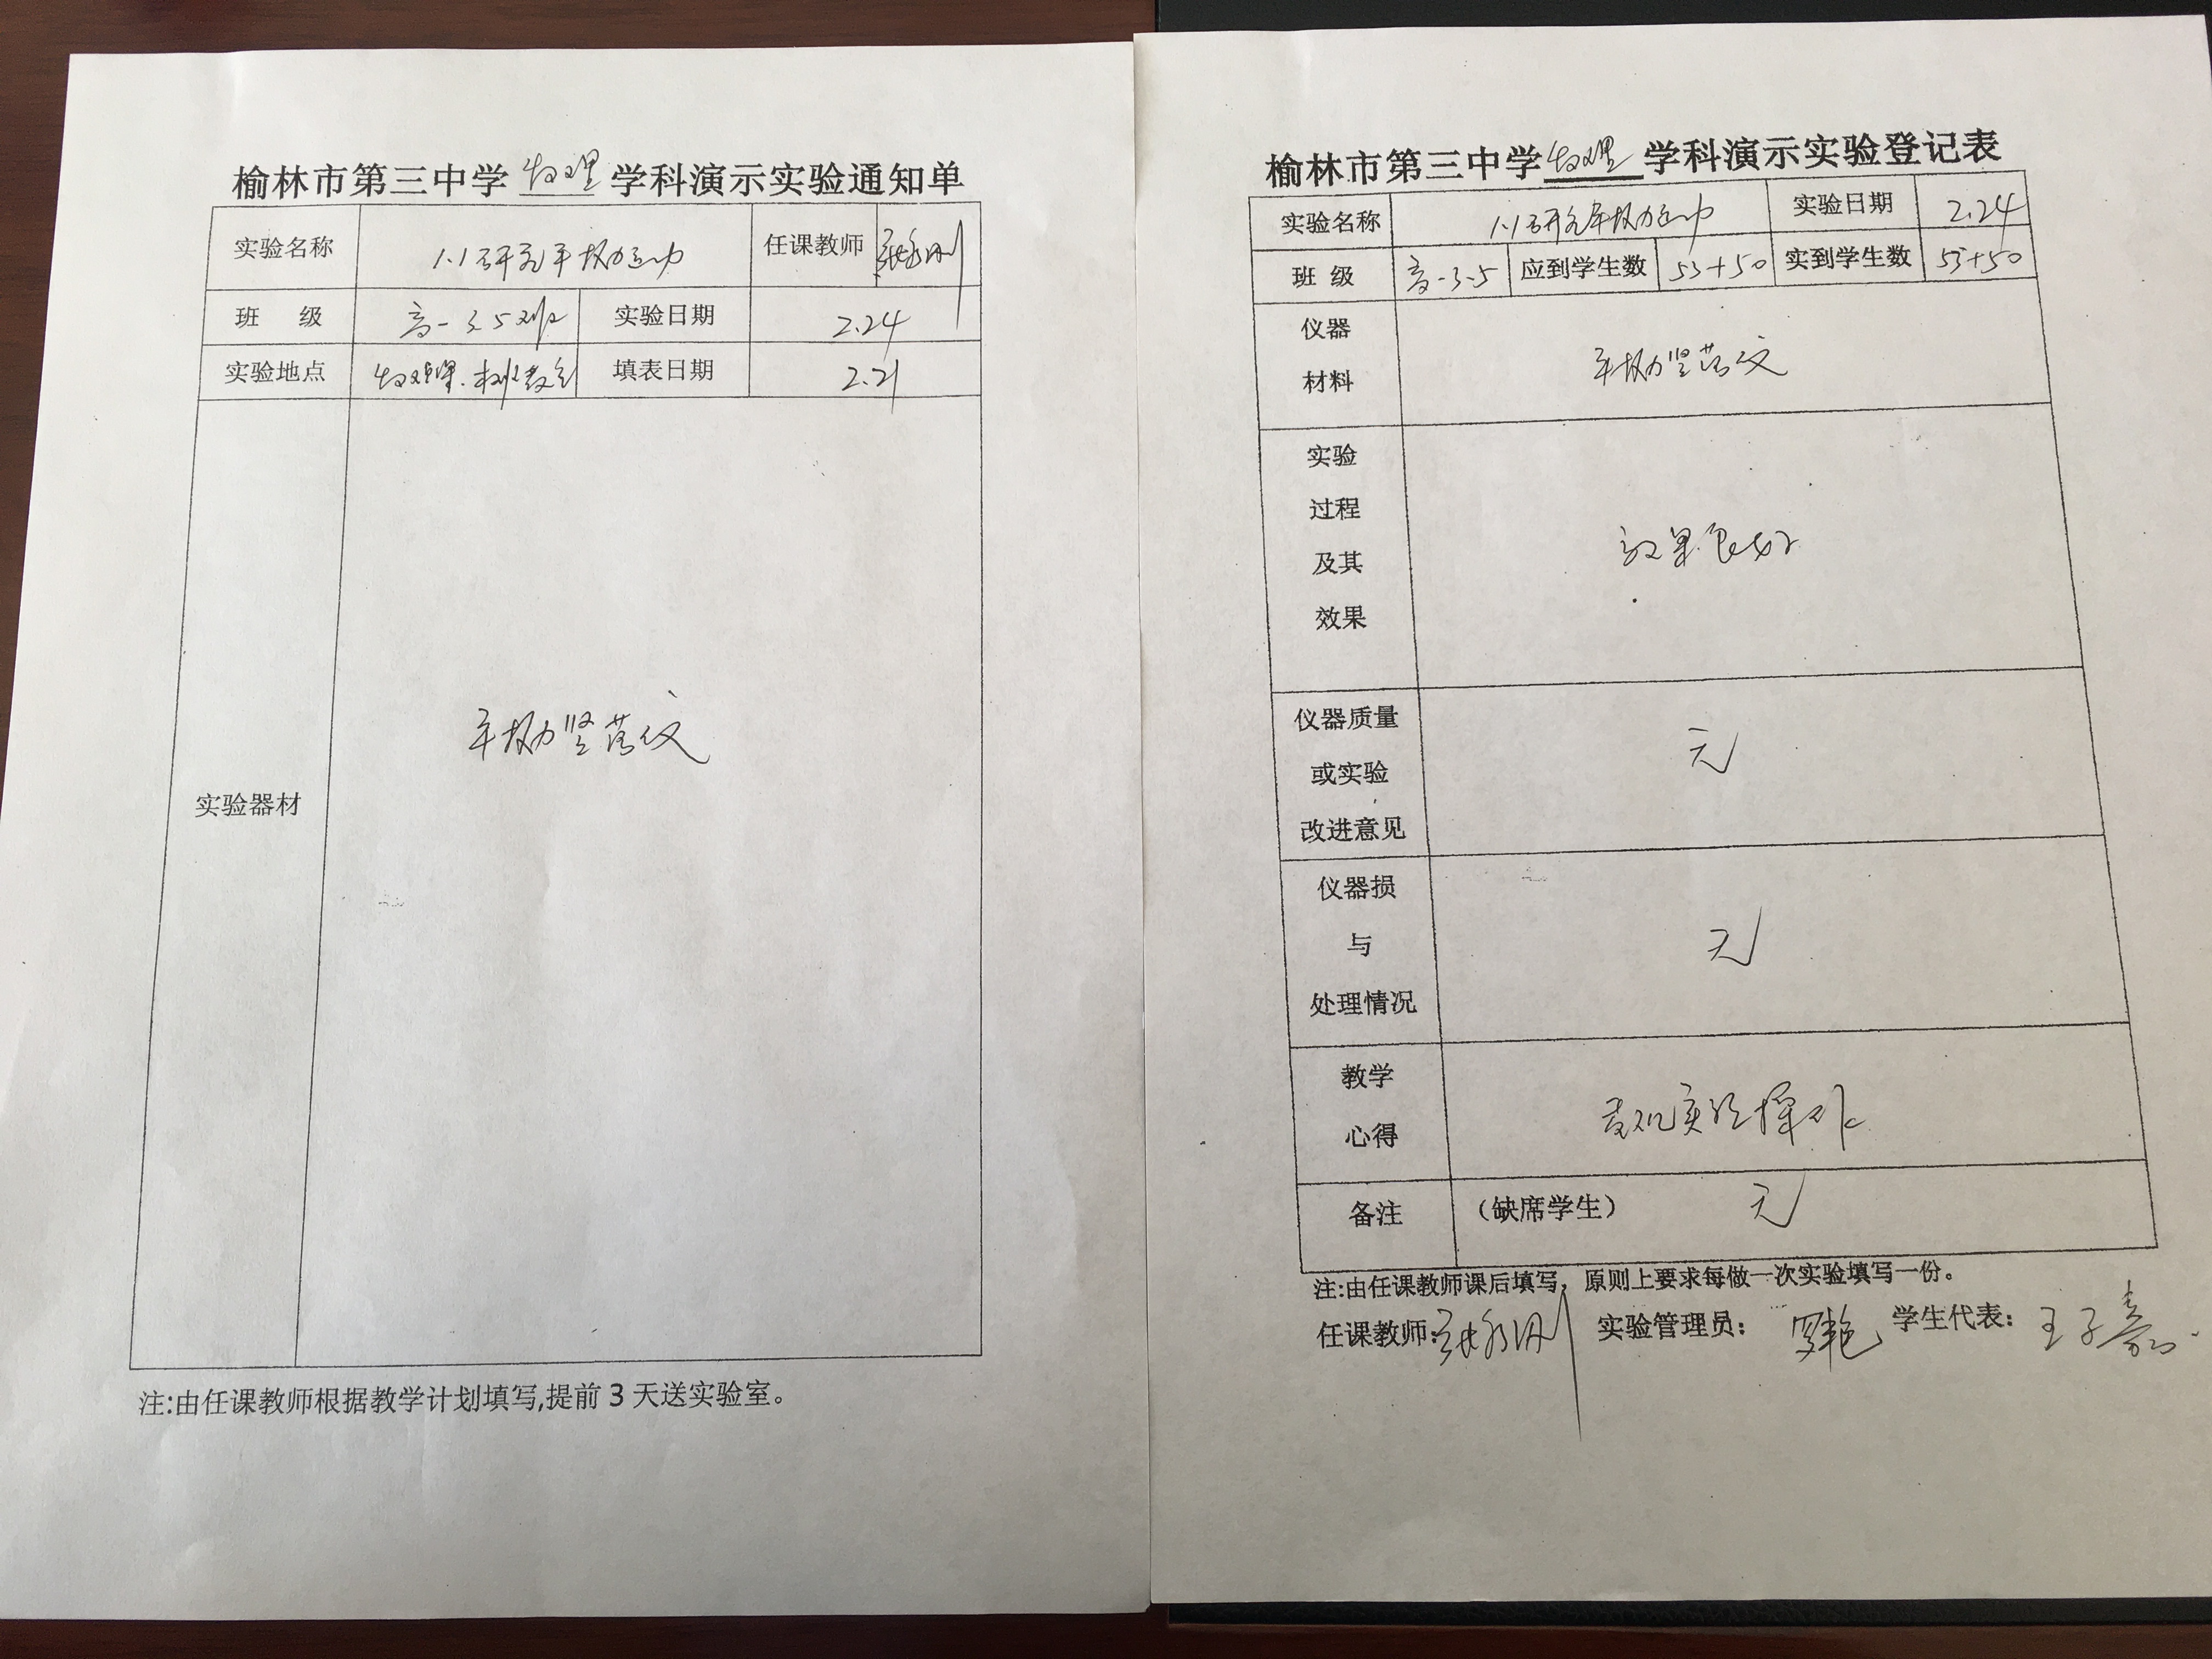 榆林市第三中学 物理 学科演示实验通知单
实验名称 1.1研究平抛运动 任课教师
班 级 高一3.5班 实验日期 2.24
实验地点 填表日期 2.21
实验器材 平抛竖落仪
注:由任课教师根据教学计划填写,提前3天送实验室。
榆林市第三中学物理学科演示实验登记表
实验名称 1.1研究平抛运动 实验日期 2.24
班 级 高一3.5 应到学生数 53+50 实到学生数 53+50
仪器
材料
平抛竖落仪
实验
过程
及其
效果
效果良好
仪器质量
或实验
改进意见
无
仪器损
与
处理情况
无
教学
心得
实验
备注 (缺席学生) 无
注:由任课教师课后填写，原则上要求每做一次实验填写一份。
任课教师: 实验管理员: 罗艳 学生代表: 王子嘉